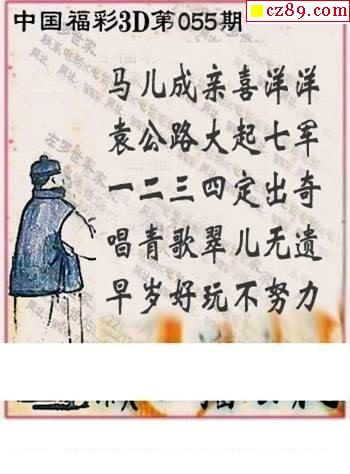 cz89.com
中国福彩3D第055期
马儿成亲喜洋洋
袁公路大起七军
一二三四定出奇
唱青歌翠儿无遗
早岁好玩不努力